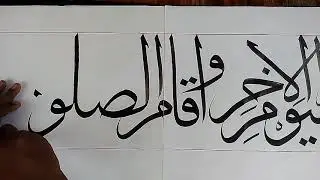 ليوم الاخر واقام الصلو